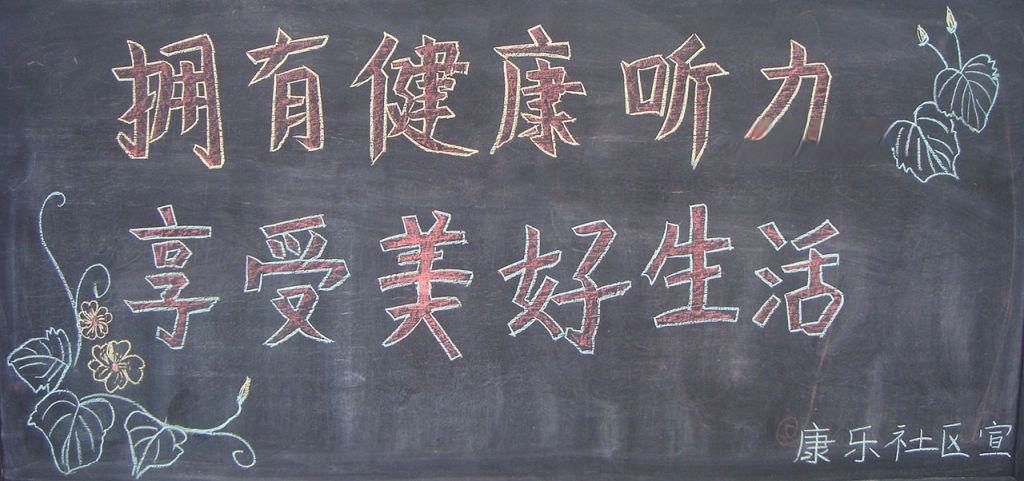 拥有健康听力
享受美好生活
康乐社区宣